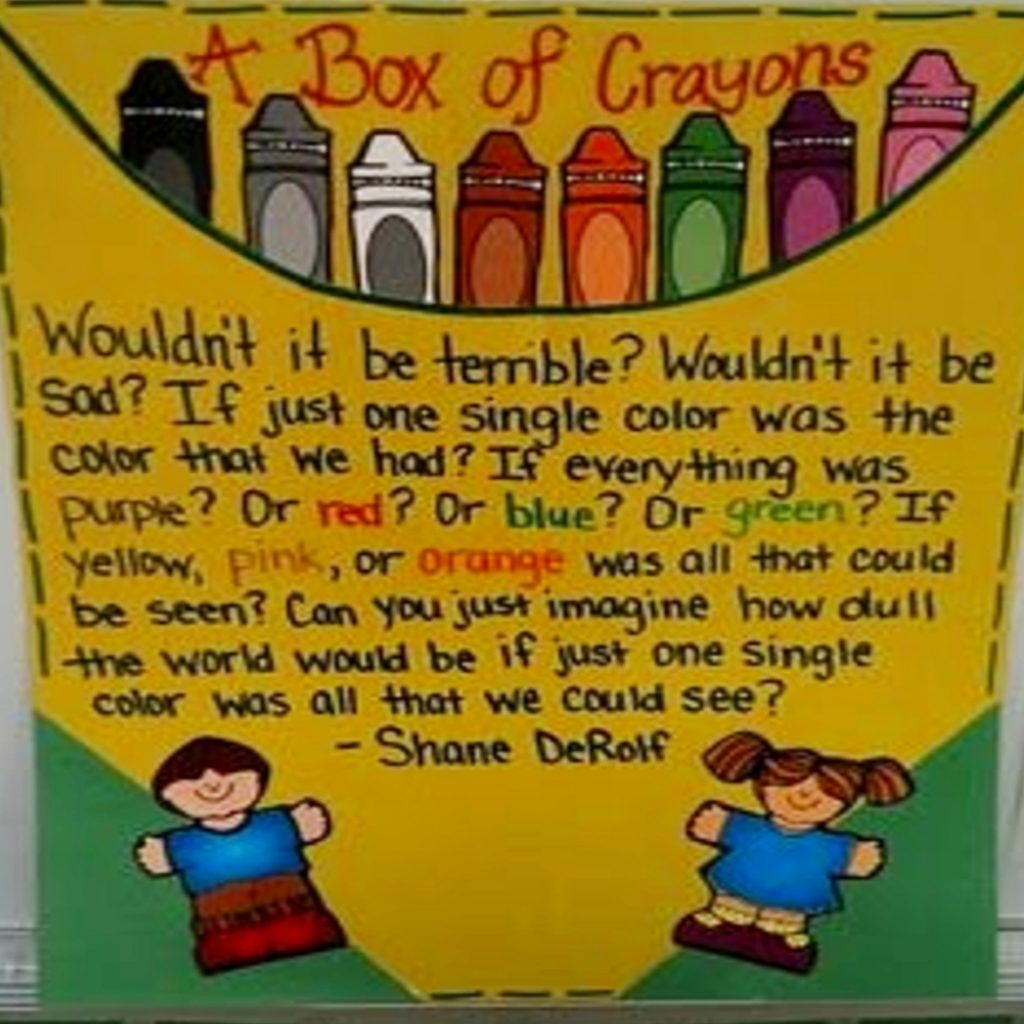 A Box of Crayons
Wouldn't it be terrible? Wouldn't it be
sad? If just one single color was the
color that we had? If everything was
purple? Or red? Or blue? Or green? If
yellow, pink, or orange was all that could
be seen? Can you just imagine how dull
the world would be if just one single
color was all that we could see?
- Shane DeRolf